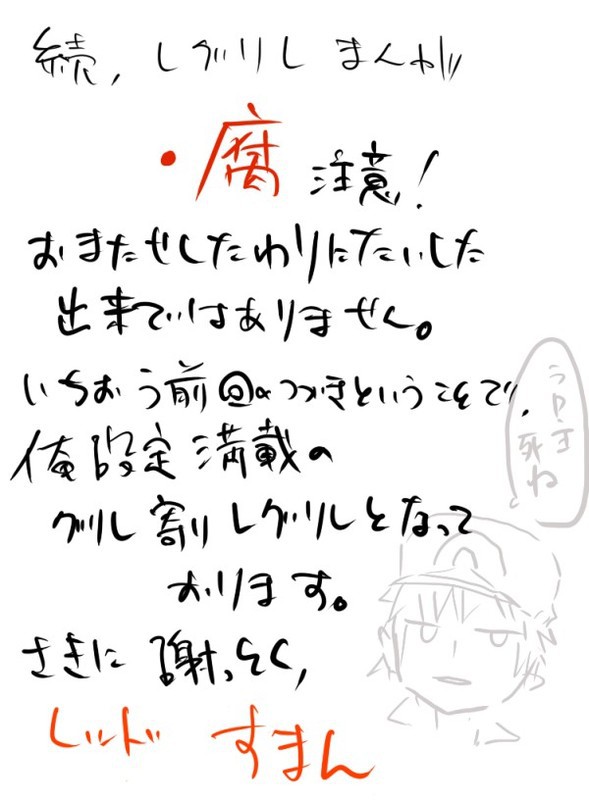 続, レグリレ まんが
・腐 注意！
おまたせしたわりにたいした
出来ではありません。
いちおう前回のつづきということで,
俺設定満載の
グリレ割りレグリレとなって
おります。
さきに謝っとく,
レッド すまん
うp主
死ね